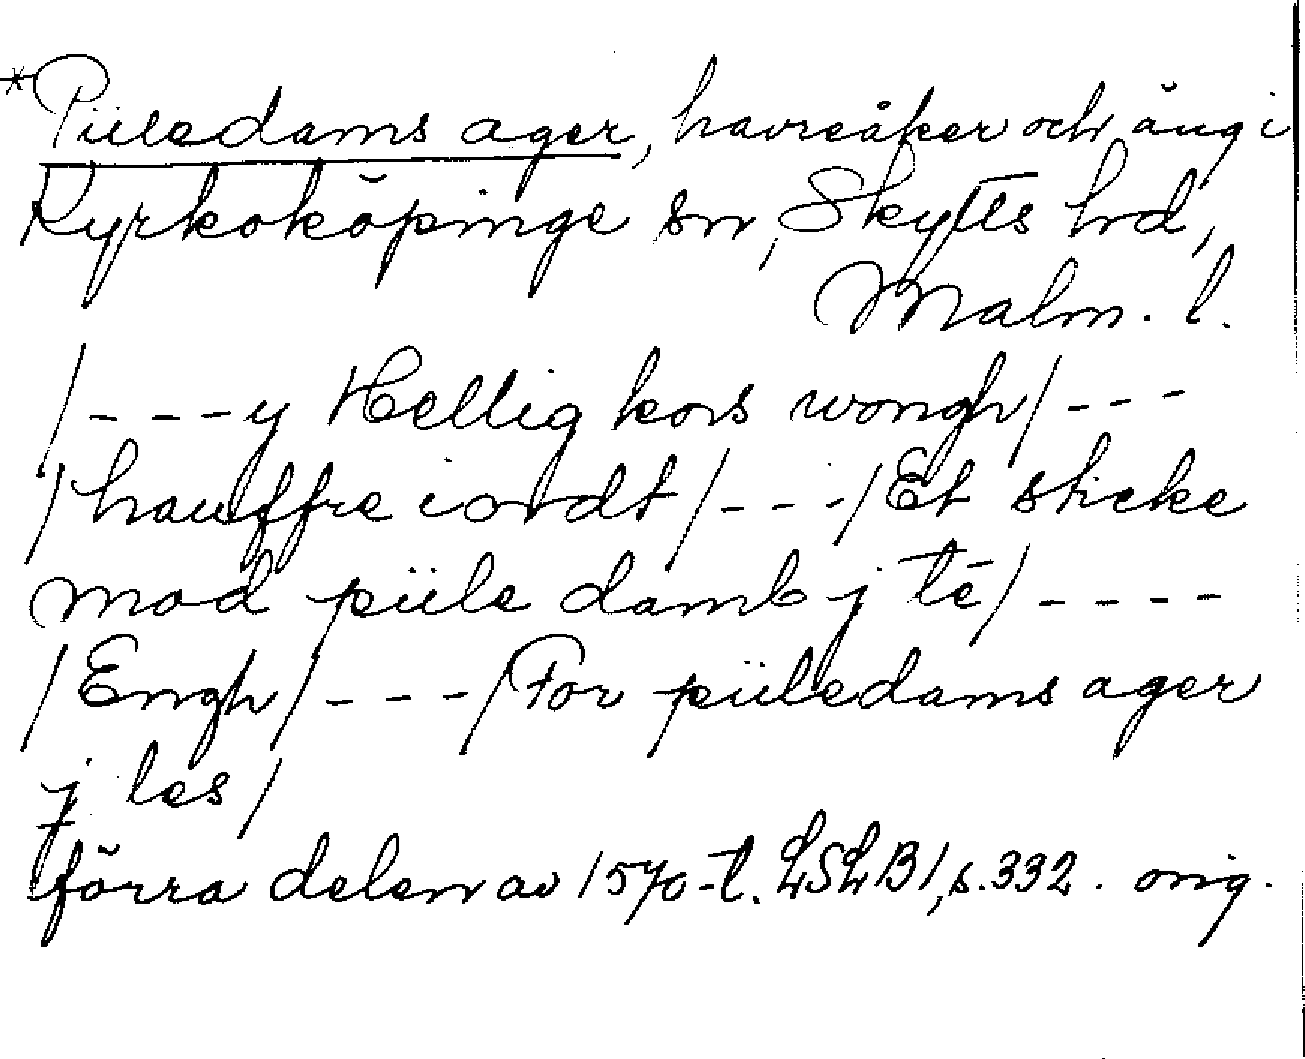 *Piiledams ager, havreåker och äng i
Kyrkoköpinge sn, Skytts hd,
Malm. l.
/- - - y Hellig kors wongh/ - - -
/hauffre iordt/ - - - /Et sticke
mod piile damb j te/ - - - -
/Engh/ - - - /For piiledams ager
j les/
förra delen av 1570-t. LSLB1, s. 332. orig.